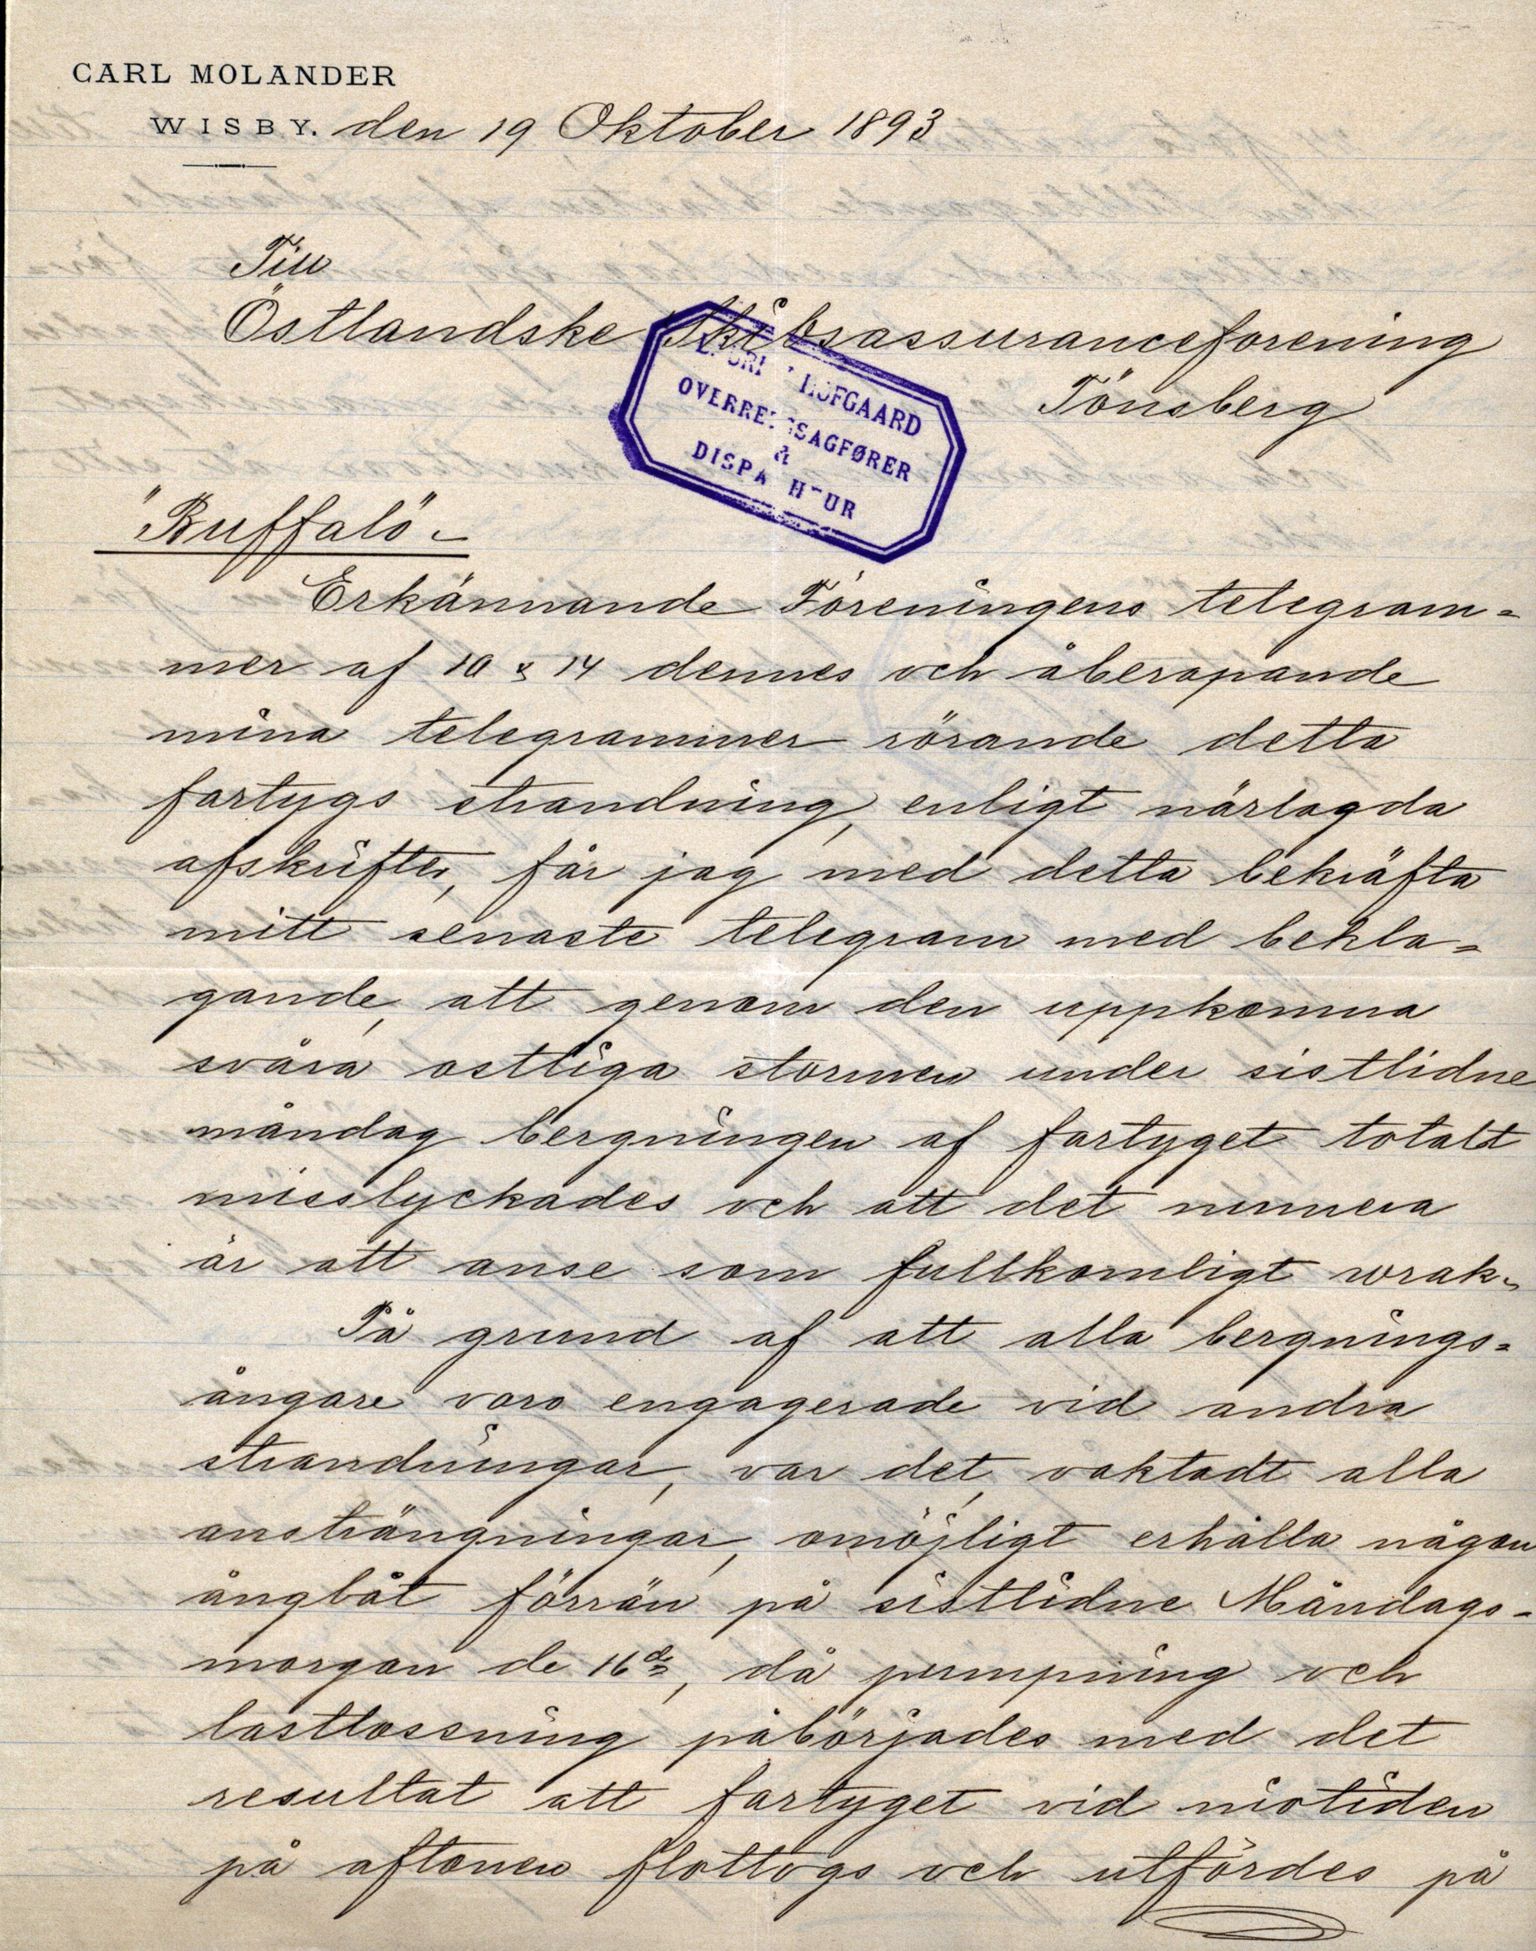 CARL MOLANDER
WISBY. den 19 Oktober 1893
Till
Östlandske Skibsassuranceforening
Tönsberg
HOFGAARD
OVERRETSSAGFØRER
&
DISPACHEUR
"Buffalo"-
Erkännande Föreningens telegram=
mer af 10 & 14 dennes och åberopande
mina telegrammer rörande detta
fartygs strandning, enligt närlagda
afskrifter, får jag med detta bekräfta
mitt senaste telegram med bekla=
gande, att genom den uppkomna
svåra ostliga stormen under sistlidne
måndag bergningen af fartyget totalt
misslyckades och att det numera
är att anse som fullkomligt wrak.
På grund af att alla bergnings=
ångare voro engagerade vid andra
strandningar, var det, oaktadt alla
ansträngningar, omöjligt erhålla någon
ångbåt förrän på sistlidne Måndags=
morgon de 16de, då pumpning och
lastlossning påbörjades med det
resultat att fartyget vid niotiden
på aftonen flottogs och utfördes på